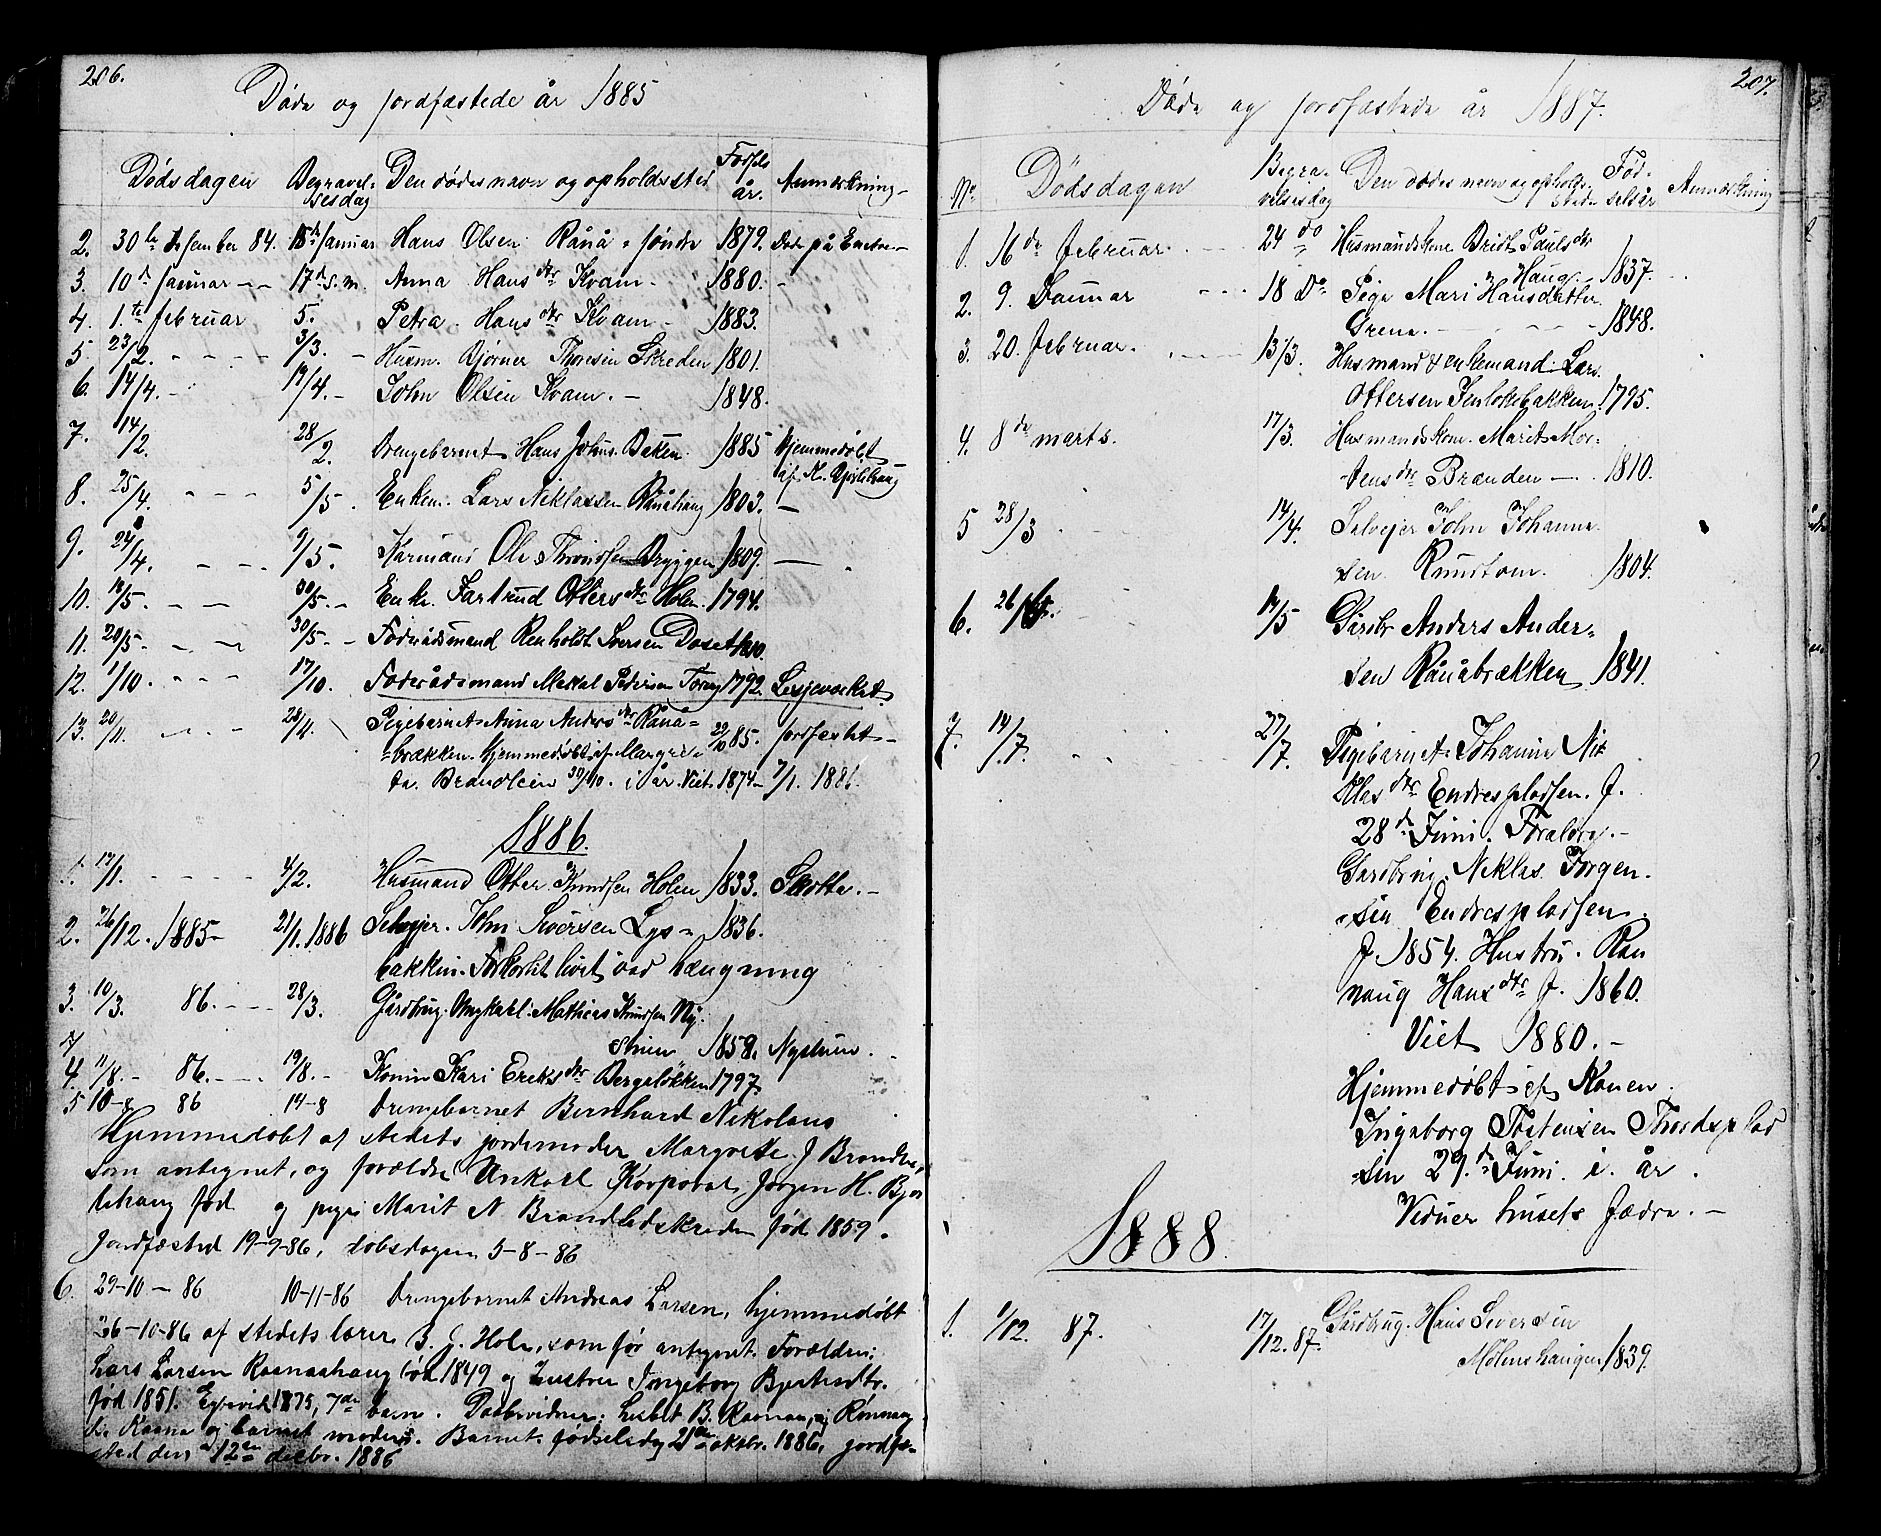 206.
Døde og jordfæstede år 1885
Dødsdagen Begravelsesdag Den dødes navn og opholdssted Fødsels år. Anmærkning
2. 30te desember 84. 18de januar Hans Olsen Rånå søndre 1879. Døde på
3. 10d januar 17d s.m. Anna Hansdtr Kvam 1880.
4. 1te februar 5. Petra Hansdtr Kvam 1883.
5. 23/2. 3/3. Husm. Bjørner Thoresen Skreden 1801.
6. 14/4. 19/4. John Olsen Kvam. 1848.
7. 14/2. 28/2. Drengebarnet Hans Johns. Bakken 1885 Hjemmedøbt
af N.
8. 25/4. 5/5. Enkem. Lars Niklassen Rånåhaug 1803.
9. 24/4. 9/5. Karmand Ole Throndsen Bryggen 1809.
10. 18/5. 30/5. Enke. Jartrud Ottersdtr Holen 1794.
11. 20/5. 30/5. Føderådsmand Renholdt Iversen Doset 1810.
12. 1/10. 17/10. Føderådsmand Mekal Pedersen 1792. Lesjeverket
13. 20/11. 28/11. Pigebarnet Anna Andersdtr Rånå=
brækken. Hjemmedøbt af Margre= 29/10 85. jordfæstet
ta. Brandlein 30/10. i år. Viet 1874. 7/1. 188
1886.
1. 19/1. 4/2. Husmand Otter Knudsen Holen 1833. Skotte.
2. 26/12. 1885 21/1. 1886 Selvejer. John Iversen Lys= 1836.
bakken. Forkortet livet ved hængning
3. 10/3. 86. 28/3. Gårdbrug. Ungkarl. Mathias Knudsen Ny.
stuen 1858. Nystuen.
4. 11/8. 86. 19/8. Konen Kari Ereksdtr Bergeløkken 1797.
5 10-8 86 14-8 Drengebarnet Bernhard Nikolaus
Hjemmedøbt af stedets jordemoder Margrete J Brandlei
som antegnet, og forældre Unkarl Korporal Jørgen H. Bjør
lihaug fød og pige Marit N Brandlidskreden fød 1859.
Jordfæsted 19-9-86, døbsdagen 5-8-86
6. 29-10-86 10-11-86 Drengebarnet Andreas Larsen, hjemmedøbt
26-10-86 af stedets lærer B. J. Holen, som før antegnet. Forælder:
Lars Larsen Raanaahaug fød 1849 og hustru Ingeborg
fød 1851. Egtevied 1875, 7de barn. Daabsvidner: Lisbet B. Raanaa, og Rønnaug
Raana og barnet moder. Barnet fødselsdag 21de oktbr. 1886, jordfæ=
sted den 12te decbr. 1886
207.
Døde og jordfæstede år 1887.
No. Dödsdagen Begravelsesdag Den dødes navn og opholdssted Fødselsår Anmærkning
1. 16de februar. 24do Husmandskone Bridt Paulsdtr
Haug 1837.
2. 9. Januar 18 Do Pige Mari Hansdatter
Grena. 1848.
3. 20. februar. 13/3. Husmand & enkemand Lars
Ottersen Jenlokebakken 1795.
4. 8de marts. 17/3. Husmandskone. Marit Mor=
tensdtr Brænden 1810.
5 28/3 14/4. Selvejer John Johanne
sen Rundtom. 1804.
6. 26/ 12/5 Gårdbr Anders Ander=
sen Rånåbrækken 1841.
7. 14/7. 27/7. Pigebarnet Johanne Nik
klasdtr Endresplodsen. f.
28de Juni. Forældre.
Gardbrug. Neklas Jørgen.
sen Endresplodsen.
f. 1854. Hustru. Ran
naug Hansdtr f. 1860.
Viet 1880.
Hjemmedøbt af Konen
Ingeborg Tostensen Thordsplad
sen 29de Juni i. år.
Vidner husets fædre.
1888.
1. 1/12. 87. 17/12. 87. Gårdbrug. Hans Siversen
Mølmshaugen 1839.